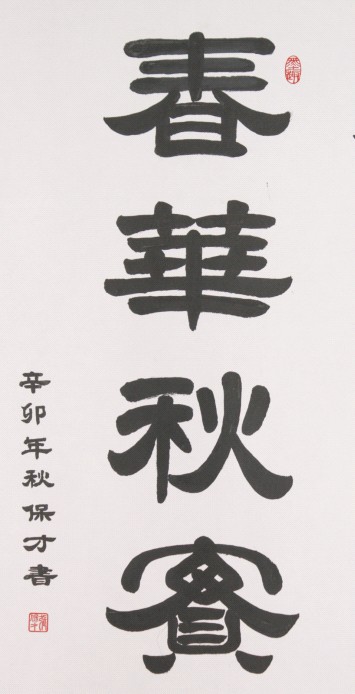 春華秋實
辛卯年秋保才書